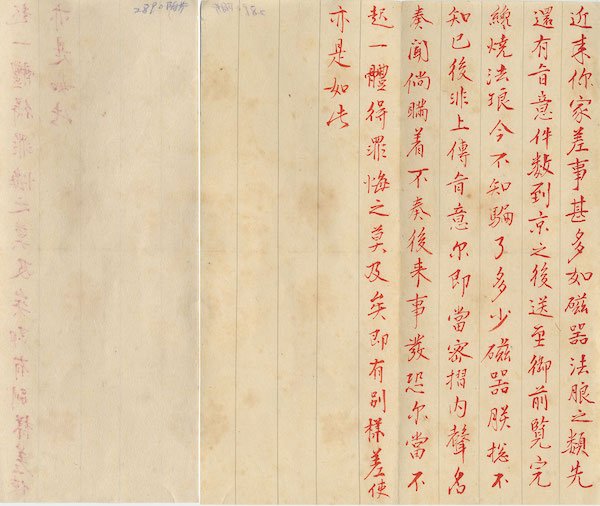 近来你家差事甚多如磁器法琅之類先
還有旨意件数到京之後送至御前覽完
纔燒法琅今不知騙了多少磁器朕総不
知已後非上傳旨意尔即當密摺内聲名
奏聞倘瞞着不奏後来事發恐尔當不
起一體得罪悔之莫及矣即有别樣差使
亦是如此